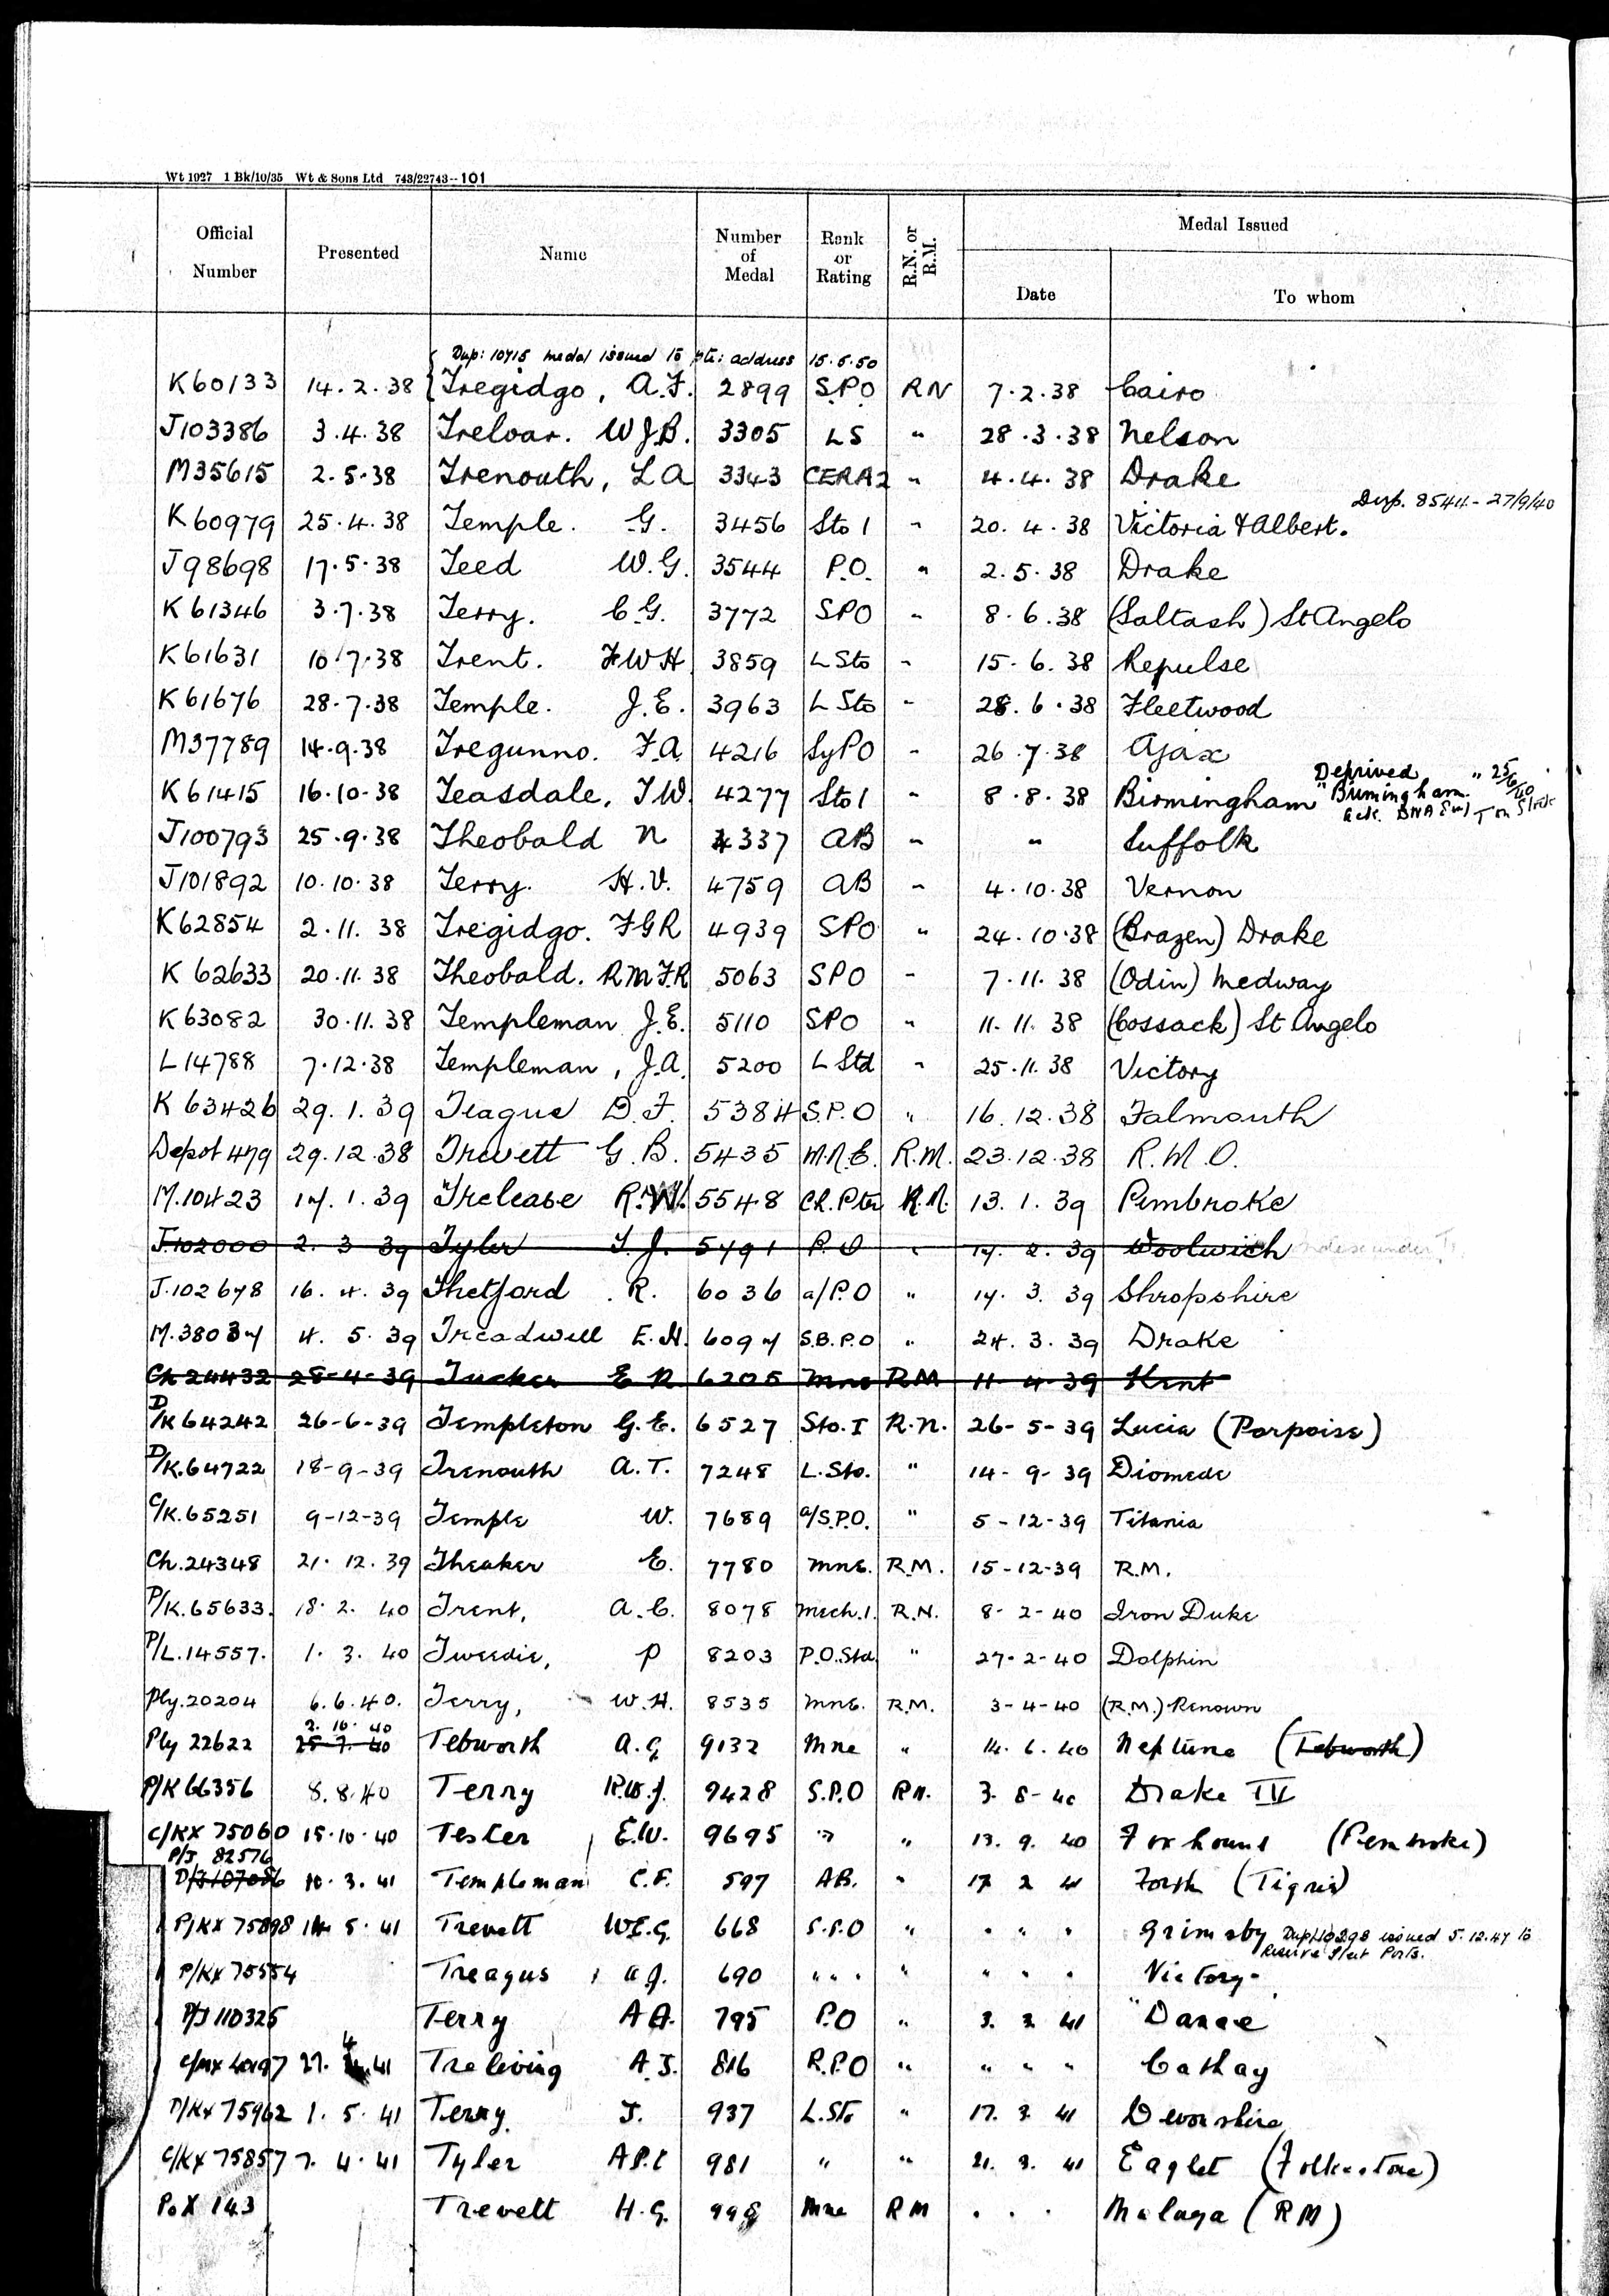 Wt 1927 1 Bk/10/35 Wt & Sons Ltd 743/22743--101
Official Number Presented Name Number of Medal Rank or Rating R.N. or R.M. Medal Issued
Date To whom
Dup: 10715 medal issued to pte: address 15.5.50
K60133 14.2.38 Tregidgo, A.F. 2899 S.P.O RN 7.2.38 Cairo
J103386 3.4.38 Treloar. WJB. 3305 LS " 28.3.38 Nelson
M35615 2.5.38 Trenouth, L A 3343 CERA2 " 4.4.38 Drake
Dup. 8544 - 27/9/40
K60979 25.4.38 Temple. G. 3456 Sto 1 " 20.4.38 Victoria & Albert.
J98698 17.5.38 Teed W.G. 3544 P.O. " 2.5.38 Drake
K61346 3.7.38 Terry. C G. 3772 SPO " 8.6.38 (Saltash) St Angelo
K61631 10.7.38 Trent. F W H 3859 L Sto " 15.6.38 Repulse
K61676 28.7.38 Temple. J.E. 3963 L Sto " 28.6.38 Fleetwood
M37789 14.9.38 Tregunno. F.A. 4216 SyPO " 26.7.38 Ajax
Deprived " 25/6/40
K61415 16.10.38 Teasdale, T W. 4277 Sto 1 " 8.8.38 Birmingham "Birmingham"
J100793 25.9.38 Theobald N 4337 AB " " Suffolk
J101892 10.10.38 Terry. H.V. 4759 AB " 4.10.38 Vernon
K62854 2.11.38 Tregidgo. F G R 4939 SPO " 24.10.38 (Brazen) Drake
K62633 20.11.38 Theobald. R M F.R 5063 SPO " 7.11.38 (Odin) Medway
K63082 30.11.38 Templeman J.E. 5110 SPO " 11.11.38 (Cossack) St Angelo
L14788 7.12.38 Templeman, J.A. 5200 L Std " 25.11.38 Victory
K63426 29.1.39 Teague D.F. 5384 S.P.O " 16.12.38 Falmouth
Depot 479 29.12.38 Trevett G.B. 5435 M.N.E. R.M. 23.12.38 R.M.O.
M.10423 17.1.39 Trelease R.W. 5548 Ch.Ptr R.N. 13.1.39 Pembroke
J.102000 2.3.39 Tyler T.J. 5791 P.O " 17.2.39 Woolwich
J.102678 16.4.39 Thetford R. 6036 a/P.O " 17.3.39 Shropshire
M.38037 4.5.39 Treadwell E.H. 6097 S.B.P.O " 24.3.39 Drake
Ch 24432 28-4-39 Tucker E R 6205 Mne RM 11-4-39 Kent
D/K64242 26-6-39 Templeton G.E. 6527 Sto.I R.N. 26-5-39 Lucia (Porpoise)
D/K.64722 18-9-39 Trenouth A.T. 7248 L.Sto. " 14-9-39 Diomede
C/K.65251 9-12-39 Temple W. 7689 a/S.P.O. " 5-12-39 Titania
Ch.24348 21.12.39 Theaker E. 7780 Mne. R.M. 15-12-39 R.M.
P/K.65633. 18.2.40 Trent, A.C. 8078 Mech.1. R.N. 8-2-40 Iron Duke
P/L.14557. 1.3.40 Tweedie, P 8203 P.O.Std " 27-2-40 Dolphin
Ply.20204 6.6.40. Terry, W.H. 8535 Mne. R.M. 3-4-40 (R.M.) Renown
2.10.40
Ply 22622 25.7.40 Tebworth A.G 9132 Mne " 14.6.40 Neptune (Tebworth)
P/K 66356 8.8.40 Terry R.W.J. 9428 S.P.O RN. 3-8-40 Drake IV
C/KX 75060 15.10.40 Tester, E.W. 9695 " " 13.9.40 Foxhound (Pembroke)
P/J 82576
D/J107086 10.3.41 Templeman C.F. 597 AB. " 17 2 41 Forth (Tigris)
P/KX 75898 14.5.41 Trevett W.E.G. 668 S.P.O " " " " Grimsby Dup 10298 issued 5.12.47 to
Reserve Fleet Ports.
P/KX 75554 Treagus, A.J. 690 " " " " " " " Victory
P/J 110325 Terry A A. 795 P.O " 3.3.41 "Danae"
C/MX 40197 27.4.41 Treleving A.J. 816 R.P.O " " " " Cathay
D/KX 75962 1.5.41 Terry J. 937 L.Sto " 17.3.41 Devonshire
C/KX 75857 7.4.41 Tyler A P.C 981 " " 21.3.41 Eaglet (Folkestone)
Po X 143 Trevett H.G. 998 Mne RM . . . Malaya (RM)